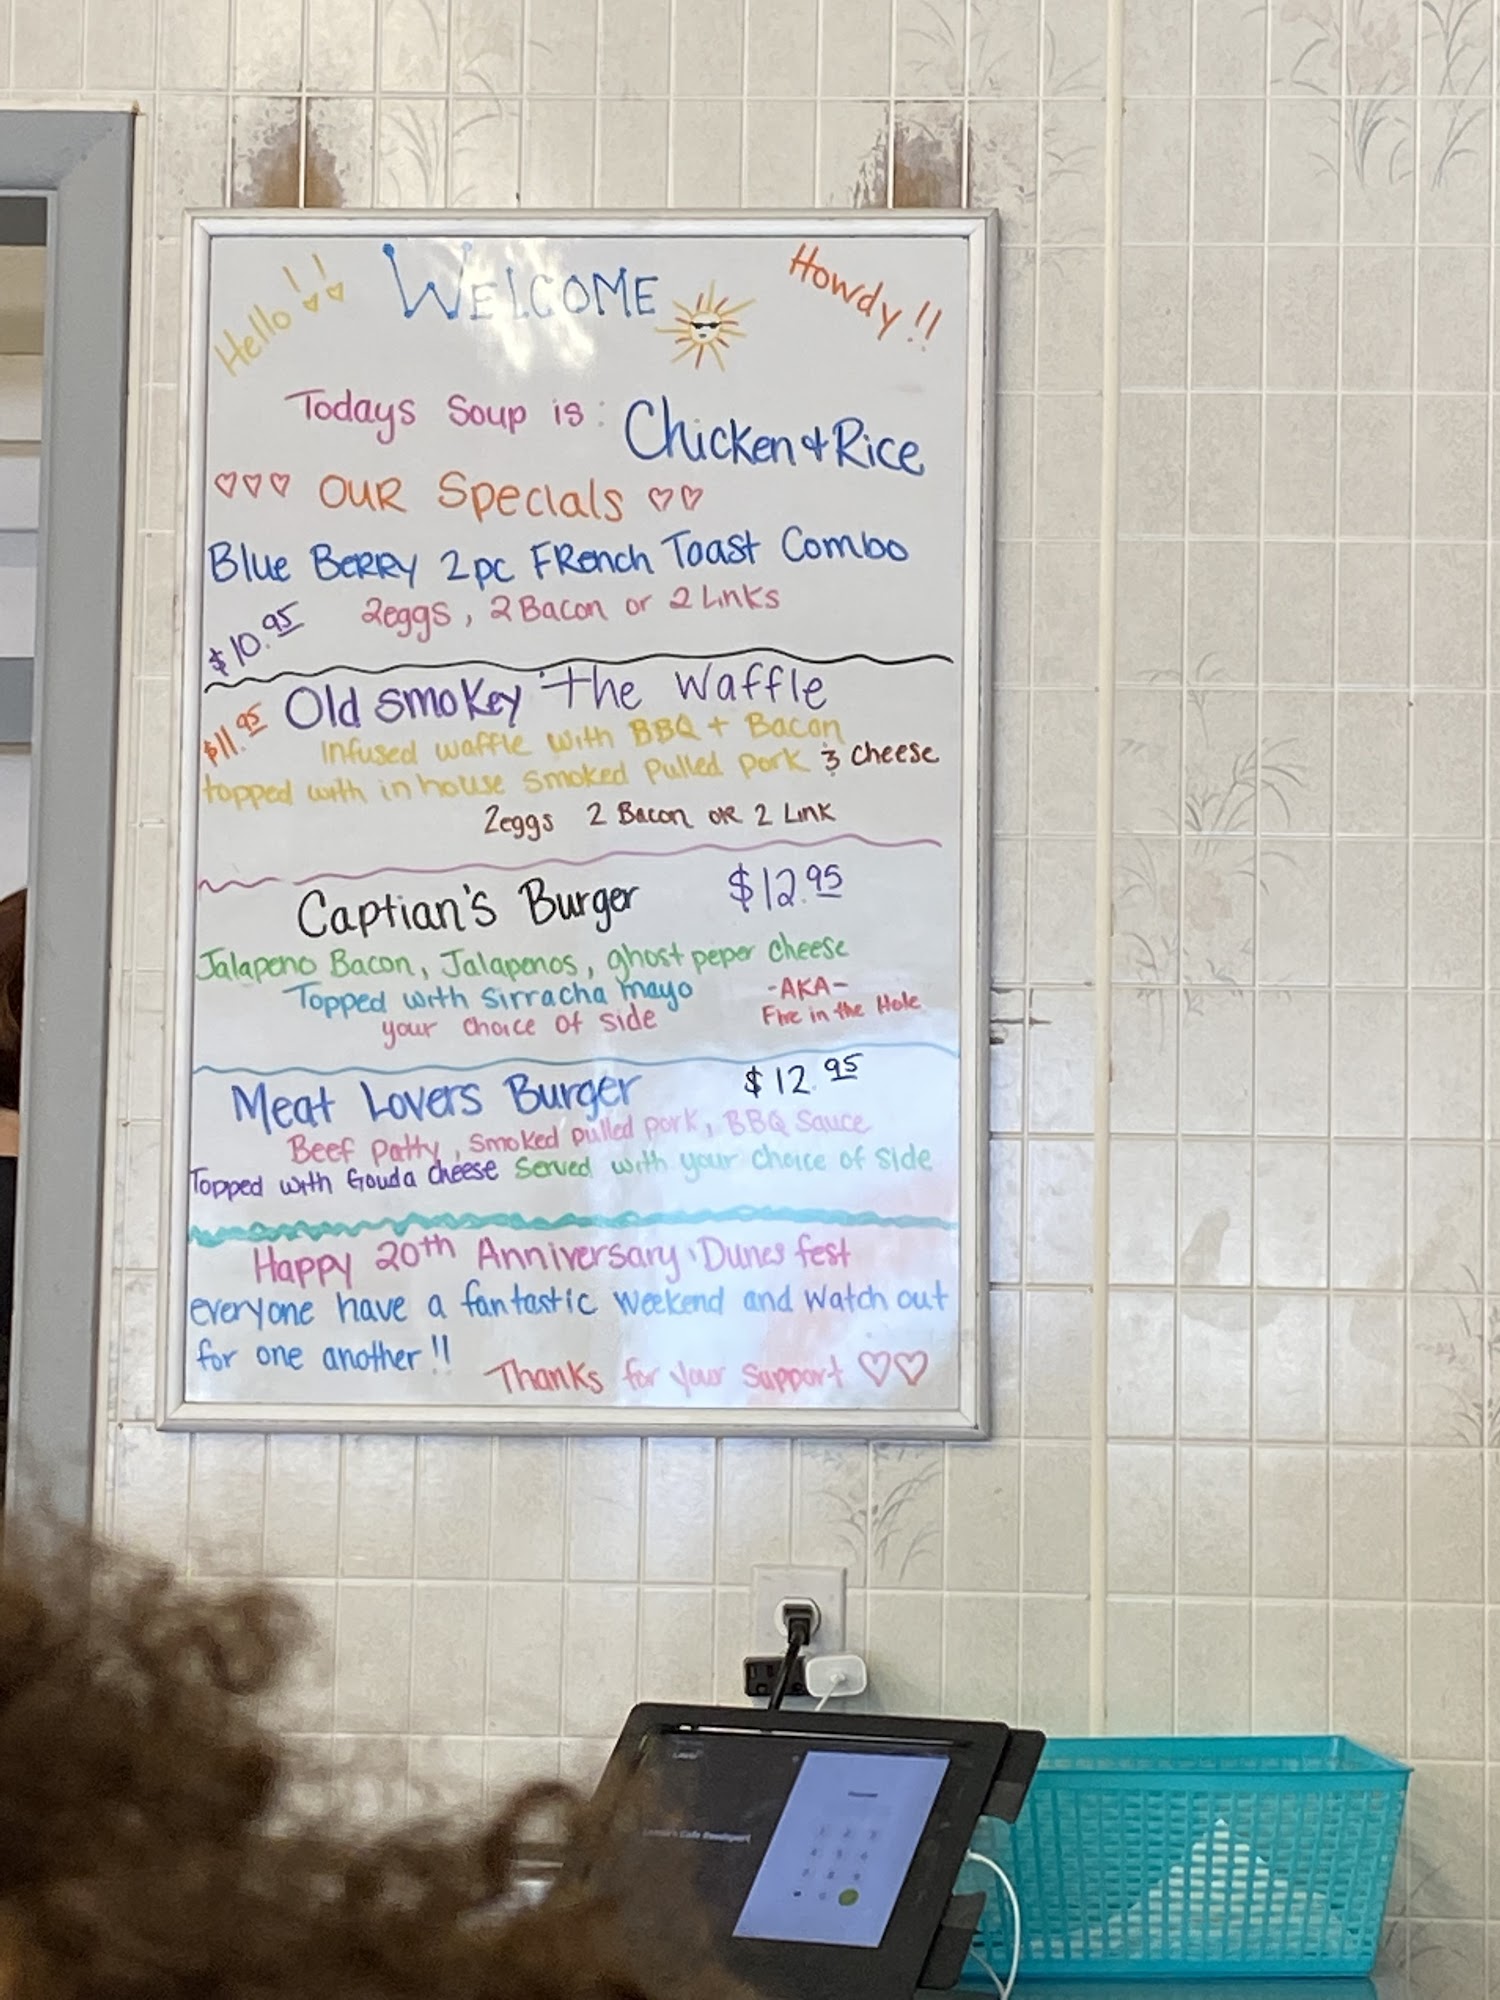 Hello!!
WELCOME
Howdy!!
Todays Soup is: Chicken & Rice
OUR Specials
Blue BERRY 2pc FRench Toast Combo
$10.95 2eggs, 2 Bacon or 2 Links
Old Smokey The Waffle
$11.95 Infused waffle with BBQ + Bacon
topped with in house smoked Pulled pork & cheese
2eggs 2 Bacon OR 2 Link
Captian's Burger $12.95
Jalapeno Bacon, Jalapenos, ghost peper cheese
Topped with sirracha mayo
-AKA-
your choice of side
Fire in the Hole
Meat Lovers Burger $12.95
Beef patty, smoked pulled pork, BBQ Sauce
Topped with Gouda cheese Served with your choice of side
Happy 20th Anniversary Dunes fest
everyone have a fantastic weekend and watch out
for one another!!
Thanks for your support